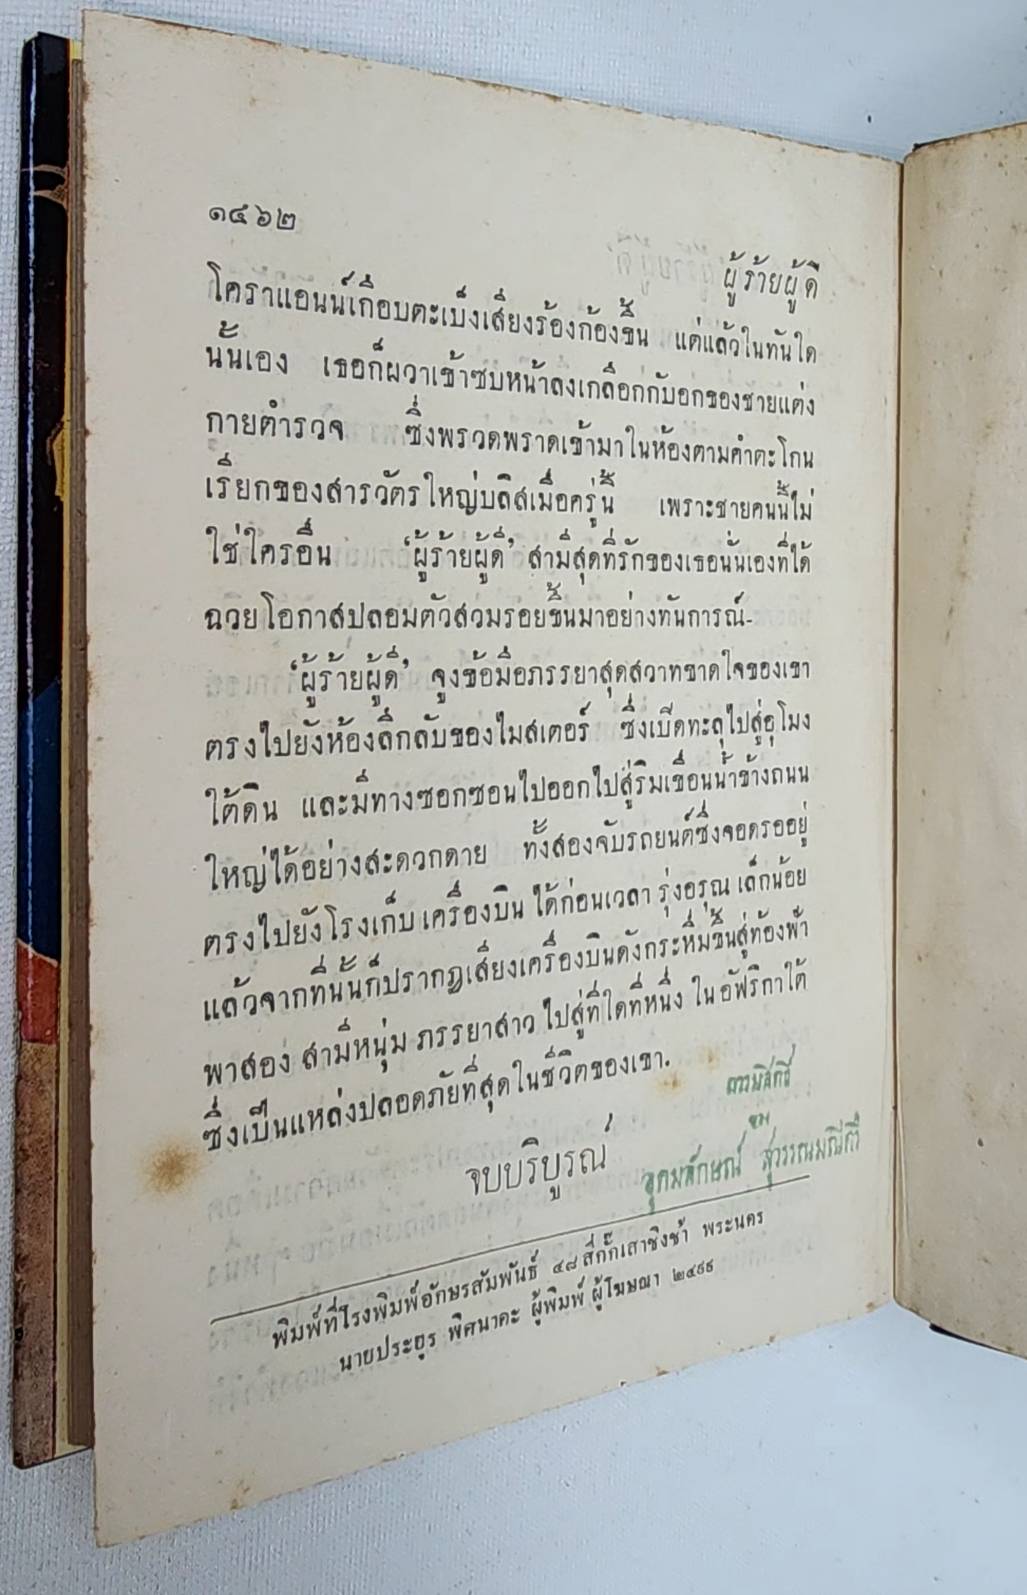 ๑๔๖๒
ผู้ร้ายผู้ดี
โคราแอนน์เกือบตะเบ็งเสียงร้องก้องขึ้น แต่แล้วในทันใด
นั้นเอง เธอก็ผวาเข้าซบหน้าลงเกลือกกับอกของชายแต่ง
กายตำรวจ ซึ่งพรวดพราดเข้ามาในห้องตามคำตะโกน
เรียกของสารวัตรใหญ่บลิสเมื่อครู่นี้ เพราะชายคนนี้ไม่
ใช่ใครอื่น ‘ผู้ร้ายผู้ดี’ สามีสุดที่รักของเธอนั่นเองที่ได้
ฉวยโอกาสปลอมตัวสวมรอยขึ้นมาอย่างทันการณ์-
‘ผู้ร้ายผู้ดี’ จูงข้อมือภรรยาสุดสวาทขาดใจของเขา
ตรงไปยังห้องลึกลับของไมสเตอร์ ซึ่งเบิดทะลุไปสู่อุโมง
ใต้ดิน และมีทางซอกซอนไปออกไปสู่ริมเขื่อนน้ำข้างถนน
ใหญ่ได้อย่างสะดวกดาย ทั้งสองจับรถยนต์ซึ่งจอดรออยู่
ตรงไปยังโรงเก็บเครื่องบิน ได้ก่อนเวลารุ่งอรุณเล็กน้อย
แล้วจากที่นั้นก็ปรากฏเสียงเครื่องบินดังกระหึ่มขึ้นสู่ท้องฟ้า
พาสอง สามีหนุ่ม ภรรยาสาว ไปสู่ที่ใดที่หนึ่ง ในอัฟริกาใต้
ซึ่งเป็นแหล่งปลอดภัยที่สุดในชีวิตของเขา.
กรรมสิทธิ์
ของ
จบบริบูรณ์
อุดมลักษณ์ สุวรรณมณีศรี
พิมพ์ที่โรงพิมพ์อักษรสัมพันธ์ ๔๘ สี่กั๊กเสาชิงช้า พระนคร
นายประยูร พิศนาคะ ผู้พิมพ์ ผู้โฆษณา ๒๔๙๕